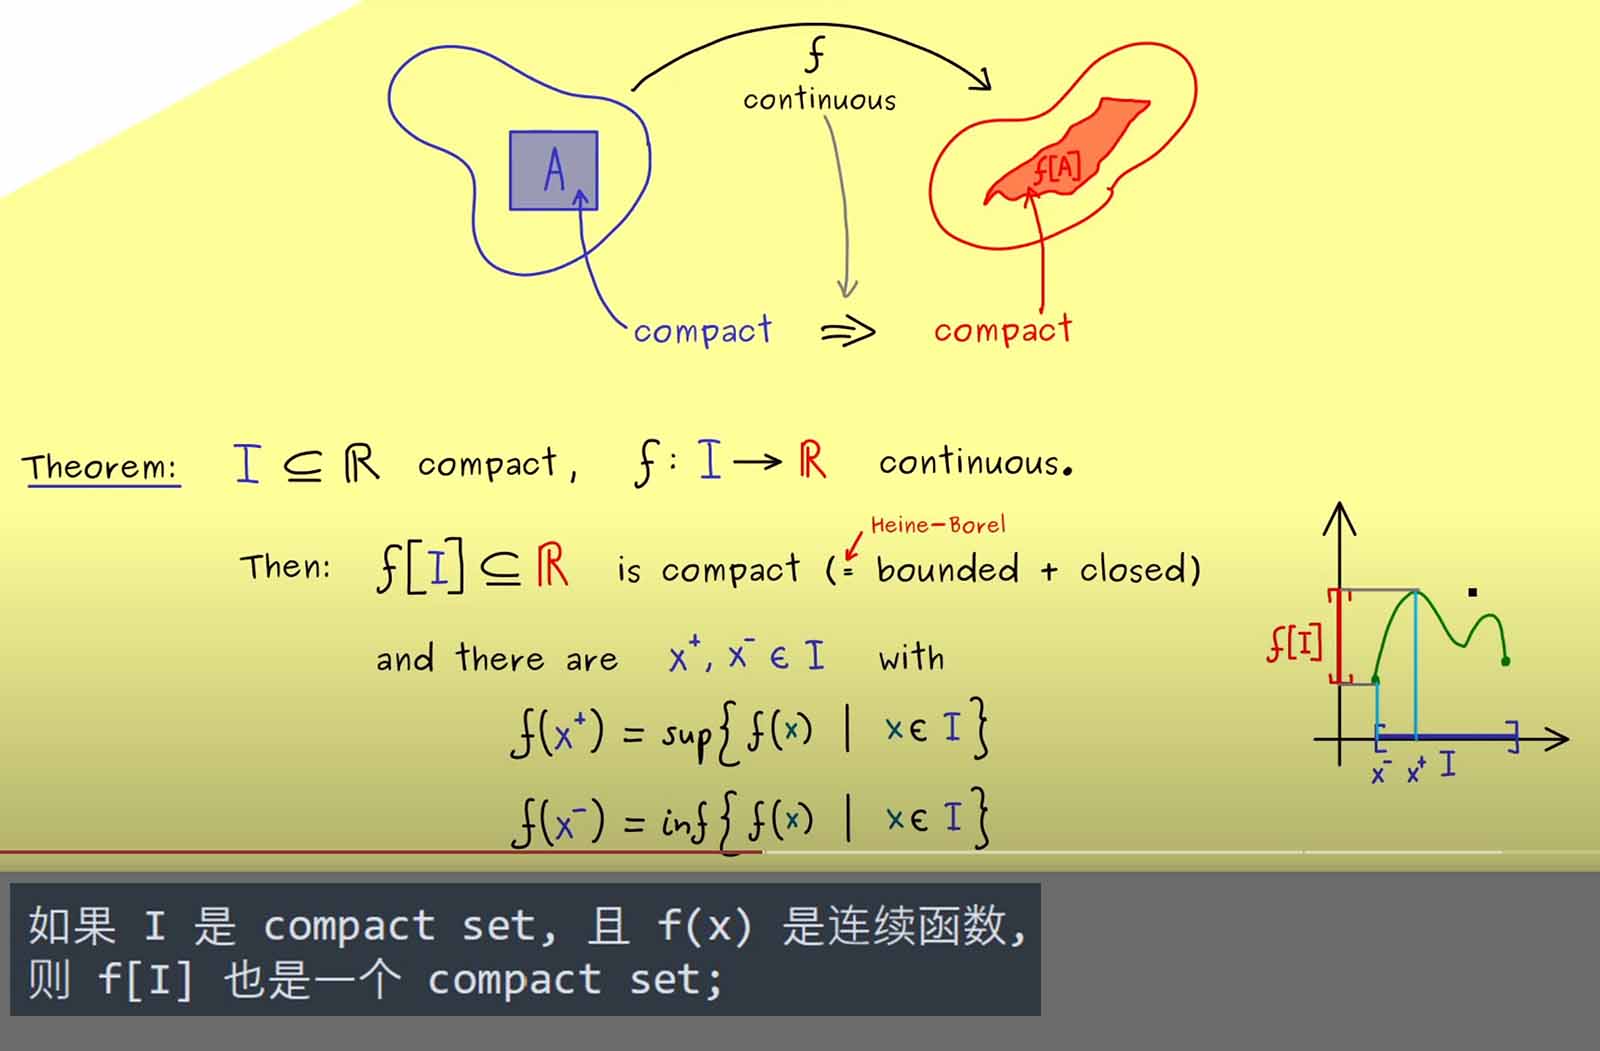 f
continuous
A
f[A]
compact ⇒ compact
Theorem: I ⊆ ℝ compact, f: I → ℝ continuous.
Heine-Borel
Then: f[I] ⊆ ℝ is compact (= bounded + closed)
and there are x⁺, x⁻ ∈ I with
f(x⁺) = sup{f(x) | x ∈ I}
f(x⁻) = inf{f(x) | x ∈ I}
f[I]
x⁻ x⁺ I
如果 I 是 compact set, 且 f(x) 是连续函数,
则 f[I] 也是一个 compact set;